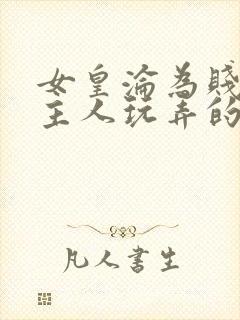 女皇淪為賤
主人玩弄的
凡人書生